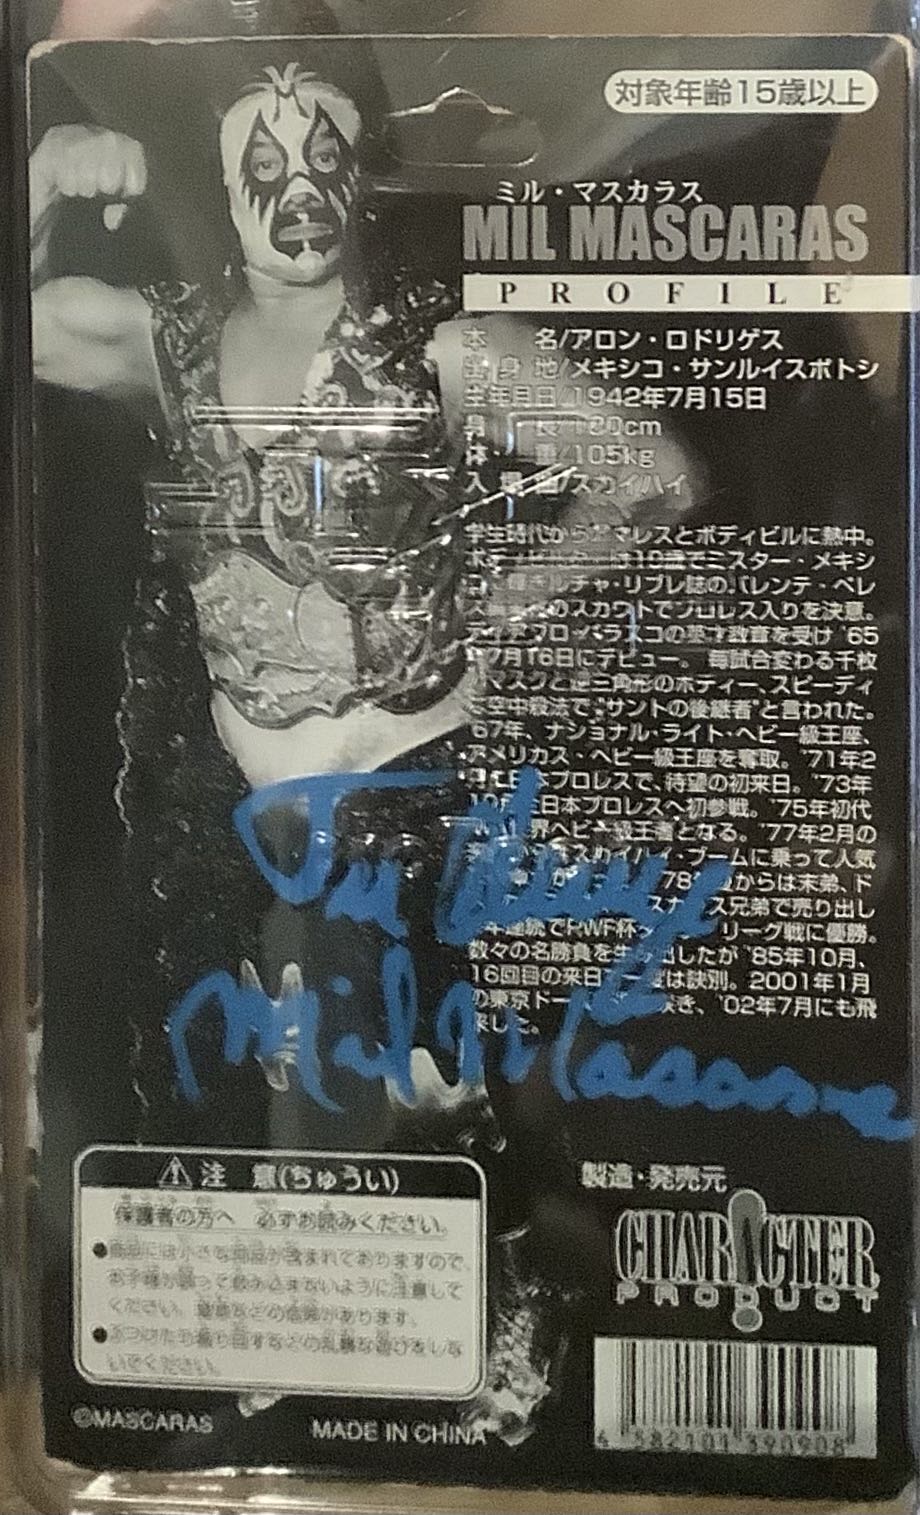 対象年齢15歳以上
ミル・マスカラス
MIL MASCARAS
PROFILE
本 名/アロン・ロドリゲス
出身地/メキシコ・サンルイスポトシ
生年月日/1942年7月15日
身 長/180cm
体 重/105kg
入場曲/スカイハイ
学生時代からアマレスとボディビルに熱中。
ボディビルダー は19歳でミスター・メキシ
コ 輝きルチャ・リブレ誌のバレンテ・ペレ
のスカウトでプロレス入りを決意。
ディアブロ・ベラスコの 教育を受け '65
7月16日にデビュー。 毎試合変わる千枚
マスクと逆三角形のボディー、スピーディ
な空中殺法で"サントの後継者"と言われた。
'67年、ナショナル・ライト・ヘビー級王座、
アメリカス・ヘビー級王座を奪取。'71年2
日本プロレスで、待望の初来日。'73年
10月 日本プロレスへ初参戦。'75年初代
世界ヘビー級王者となる。'77年2月の
スカイハイ・ブームに乗って人気
78 からは末弟、ド
ス兄弟で売り出し
年連続でPWF杯 リーグ戦に優勝。
数々の名勝負を生み出したが '85年10月、
16回目の来日で は訣別。2001年1月
の東京ドー 、'02年7月にも飛
来した。
Mil Mascaras
注 意(ちゅうい)
保護者の方へ 必ずお読みください。
●商品には小さな部品が含まれておりますので、
お子様が誤って飲み込まないように注意して
ください。窒息などの危険があります。
●ぶつけたり振り回すなどの乱暴な遊びをしな
いでください。
製造・発売元
CHARACTER
PRODUCT
4 582101 390908
©MASCARAS
MADE IN CHINA